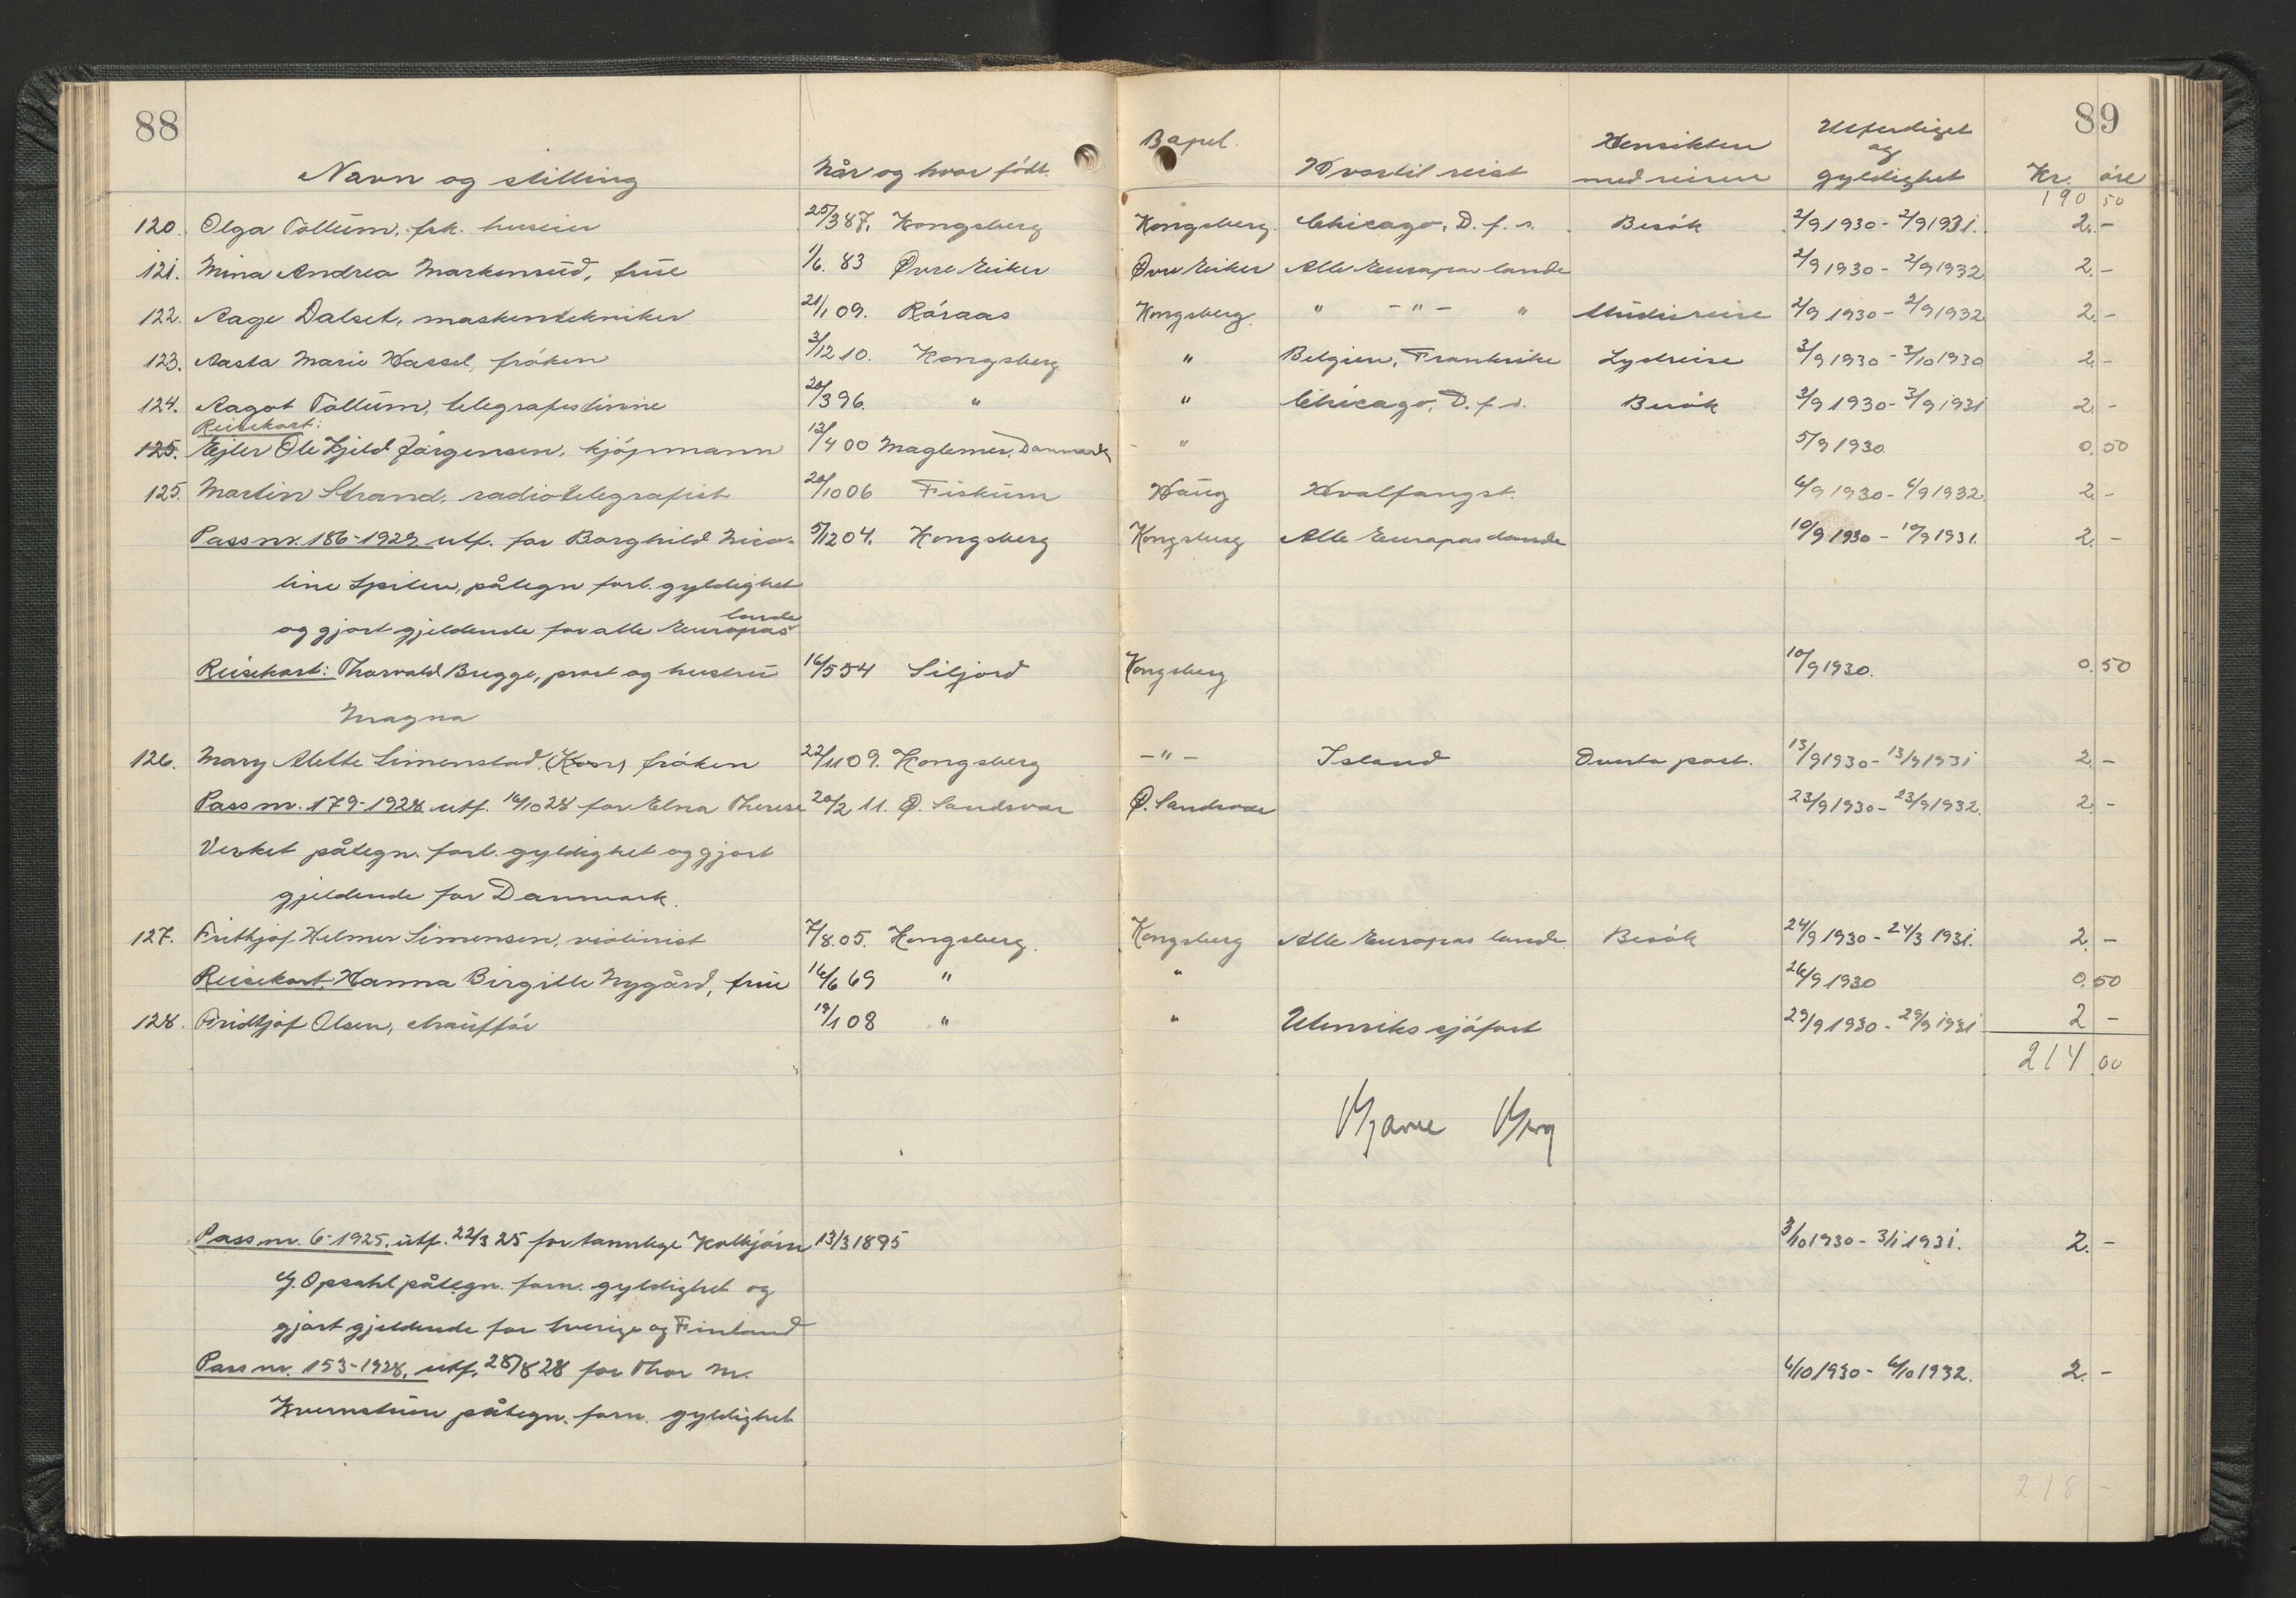 88
89
Navn og stilling Når og hvor född. Bopel. Hvortil reist Hensikten med reisen Utferdiget og gyldighet Kr. öre
190 50
120. Olga Tollum, frk. huseier 25/3 87. Kongsberg Kongsberg. Chicago, D.f.s. Besök 2/9 1930 - 2/9 1931. 2.-
121. Mina Andrea Markenrud, frue 1/6. 83 Övre Eiker Övre Eiker Alle Europas lande 2/9 1930 - 2/9 1932 2.-
122. Aage Dalset, maskintekniker 21/1 09. Röraas Kongsberg. " -"- " Studiereise 2/9 1930 - 2/9 1932 2.-
123. Aasta Marie Hassel, fröken 3/12 10. Kongsberg " Belgien, Frankrike Lystreise 3/9 1930 - 3/10 1930 2.-
124. Aagot Tollum, telegrafistinne 20/3 96. " " Chicago, D.f.s. Besök 3/9 1930 - 3/9 1931 2.-
Reisekort:
125. Ejler Ole Kjeld Jörgensen, kjöpmann 13/4 00 Maglemer, Danmark - " 5/9 1930. 0.50
125. Martin Strand, radiotelegrafist 20/10 06 Fiskum Haug Hvalfangst. 6/9 1930 - 6/9 1932. 2.-
Pass nr. 186-1929 utf. for Borghild Nico- 5/12 04. Kongsberg Kongsberg Alle Europas lande 10/9 1930 - 10/9 1931. 2.-
line Spiten, påtegn forl. gyldighet
og gjort gjeldende for alle Europas lande
Reisekort: Thorvald Bugge, prost og hustru 16/5 54 Siljord Kongsberg 10/9 1930. 0.50
Magna
126. Mary Alette Simenstad, (Kon) fröken 22/11 09. Kongsberg -"- Island Overta post. 13/9 1930 - 13/9 1931 2.-
Pass nr. 179-1928 utf. 16/10 28 for Elna Therese 20/2 11. Ö. Sandsvær Ö. Sandsvær 23/9 1930 - 23/9 1932. 2.-
Verket påtegn. forl. gyldighet og gjort
gjeldende for Danmark.
127. Frithjof Helmer Simensen, violinist 7/8. 05. Kongsberg. Kongsberg Alle Europas lande. Besök 24/9 1930 - 24/3 1931. 2.-
Reisekort. Hanna Birgitte Nygård, frue 16/6 69 " " 26/9 1930 0.50
128. Fridtjof Olsen, chaufför 19/1 08 " " Utenriks sjöfart 29/9 1930 - 29/9 1931 2 -
214 00
Bjarne Berg
Pass nr. 6-1925. utf. 22/3 25 for tannlege Kolbjörn 13/3 1895 3/10 1930 - 3/1 1931. 2.-
G. Opsahl påtegn. forn. gyldighet og
gjort gjeldende for Sverige og Finland
Pass nr. 153-1928, utf. 28/8 28 for Thor M. 6/10 1930 - 6/10 1932. 2.-
Kvernstuen påtegn. forn. gyldighet
218 -